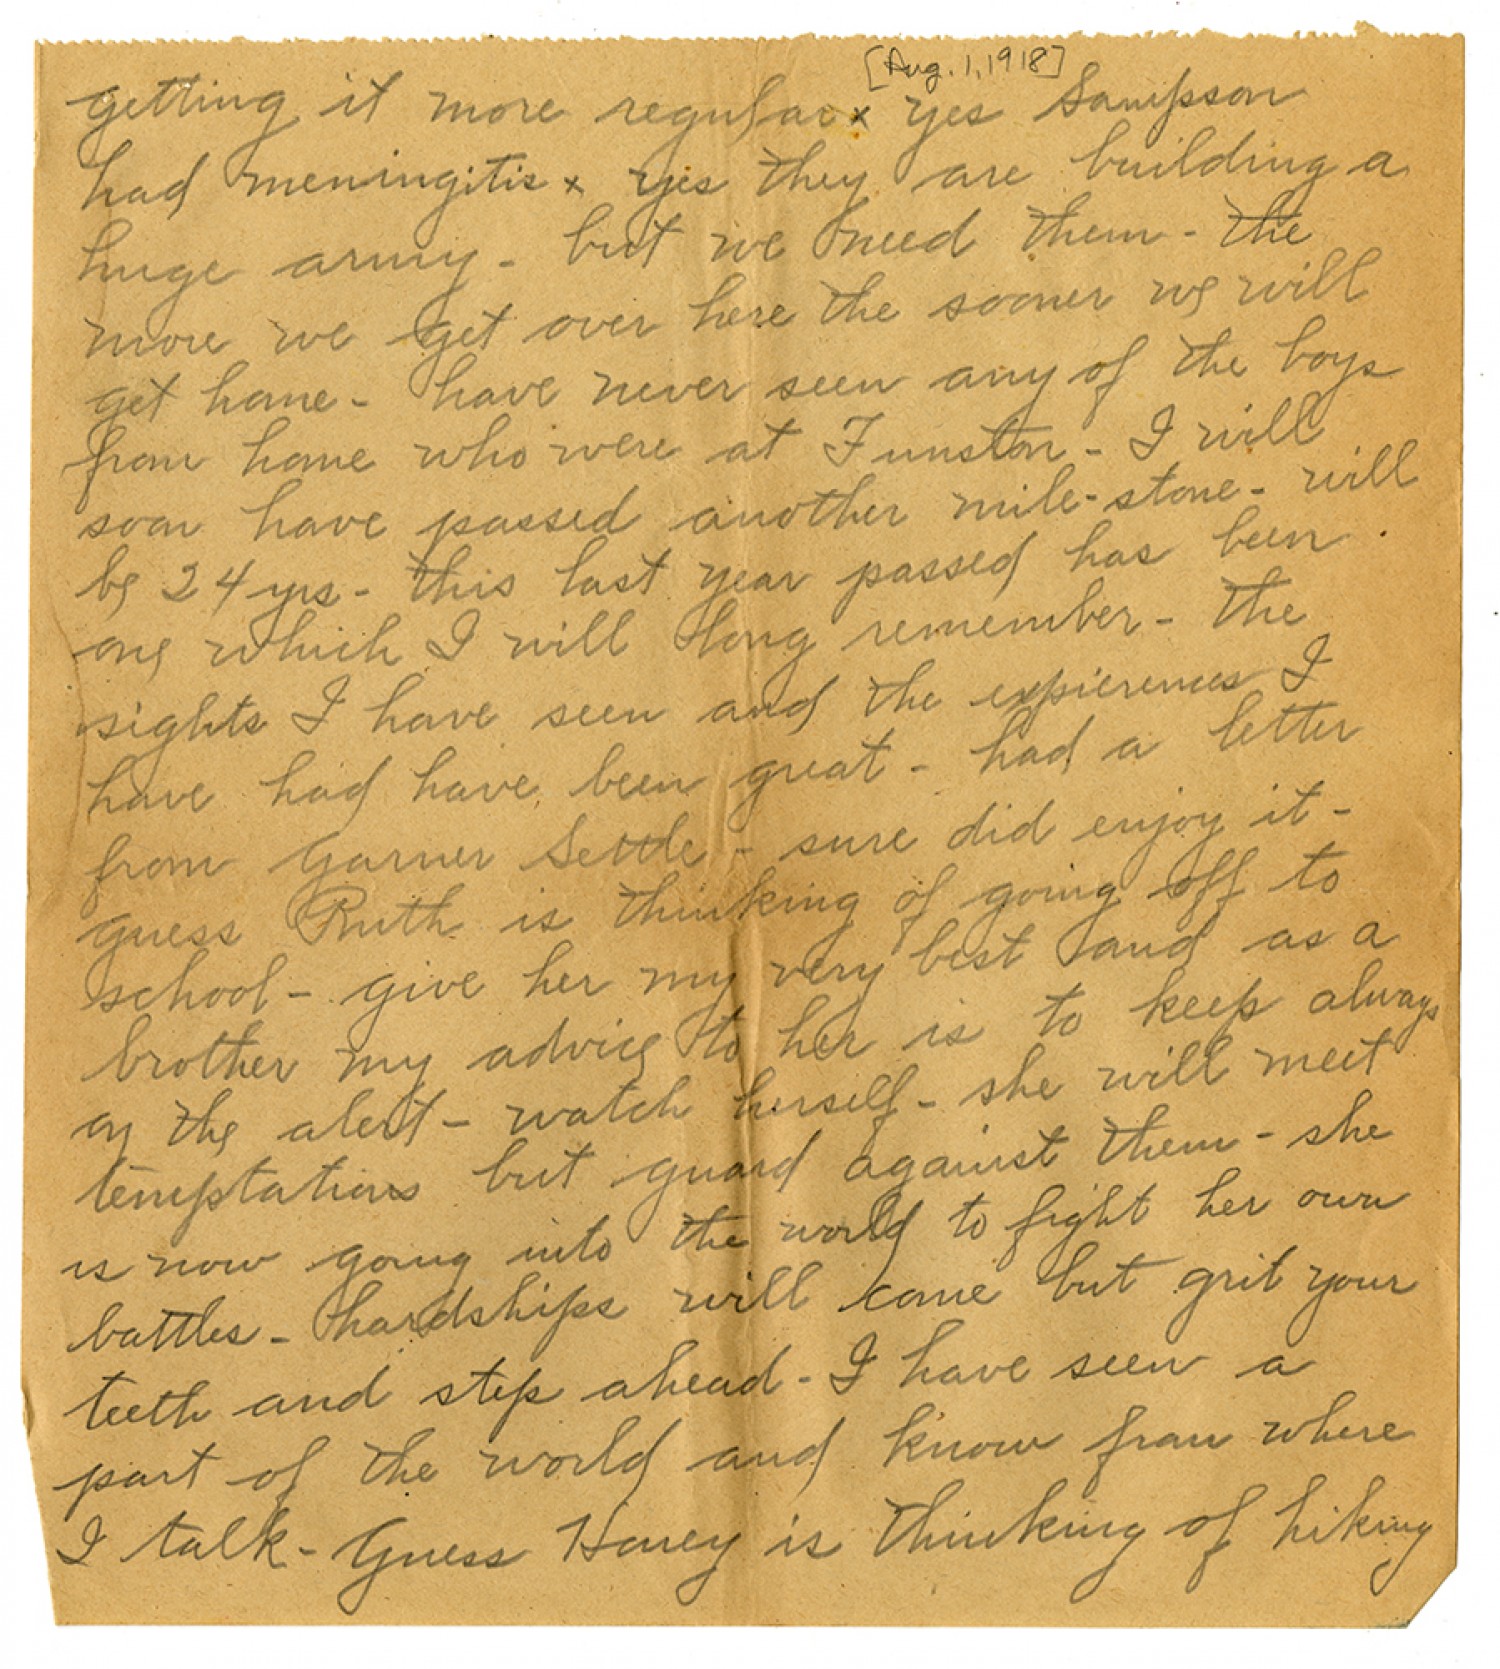 [Aug. 1, 1918]
getting it more regular x yes Sampson
had meningitis x yes they are building a
huge army - but we need them - the
more we get over here the sooner we will
get home - have never seen any of the boys
from home who were at Funston - I will
soon have passed another mile-stone - will
be 24 yrs - this last year passed has been
one which I will long remember - the
sights I have seen and the expierences I
have had have been great - had a letter
from Garner Settle - sure did enjoy it -
guess Ruth is thinking of going off to
school - give her my very best and as a
brother my advice to her is to keep always
on the alert - watch herself - she will meet
temptations but guard against them - she
is now going into the world to fight her own
battles - hardships will come but grit your
teeth and step ahead - I have seen a
part of the world and know from where
I talk - Guess Harvey is thinking of hiking